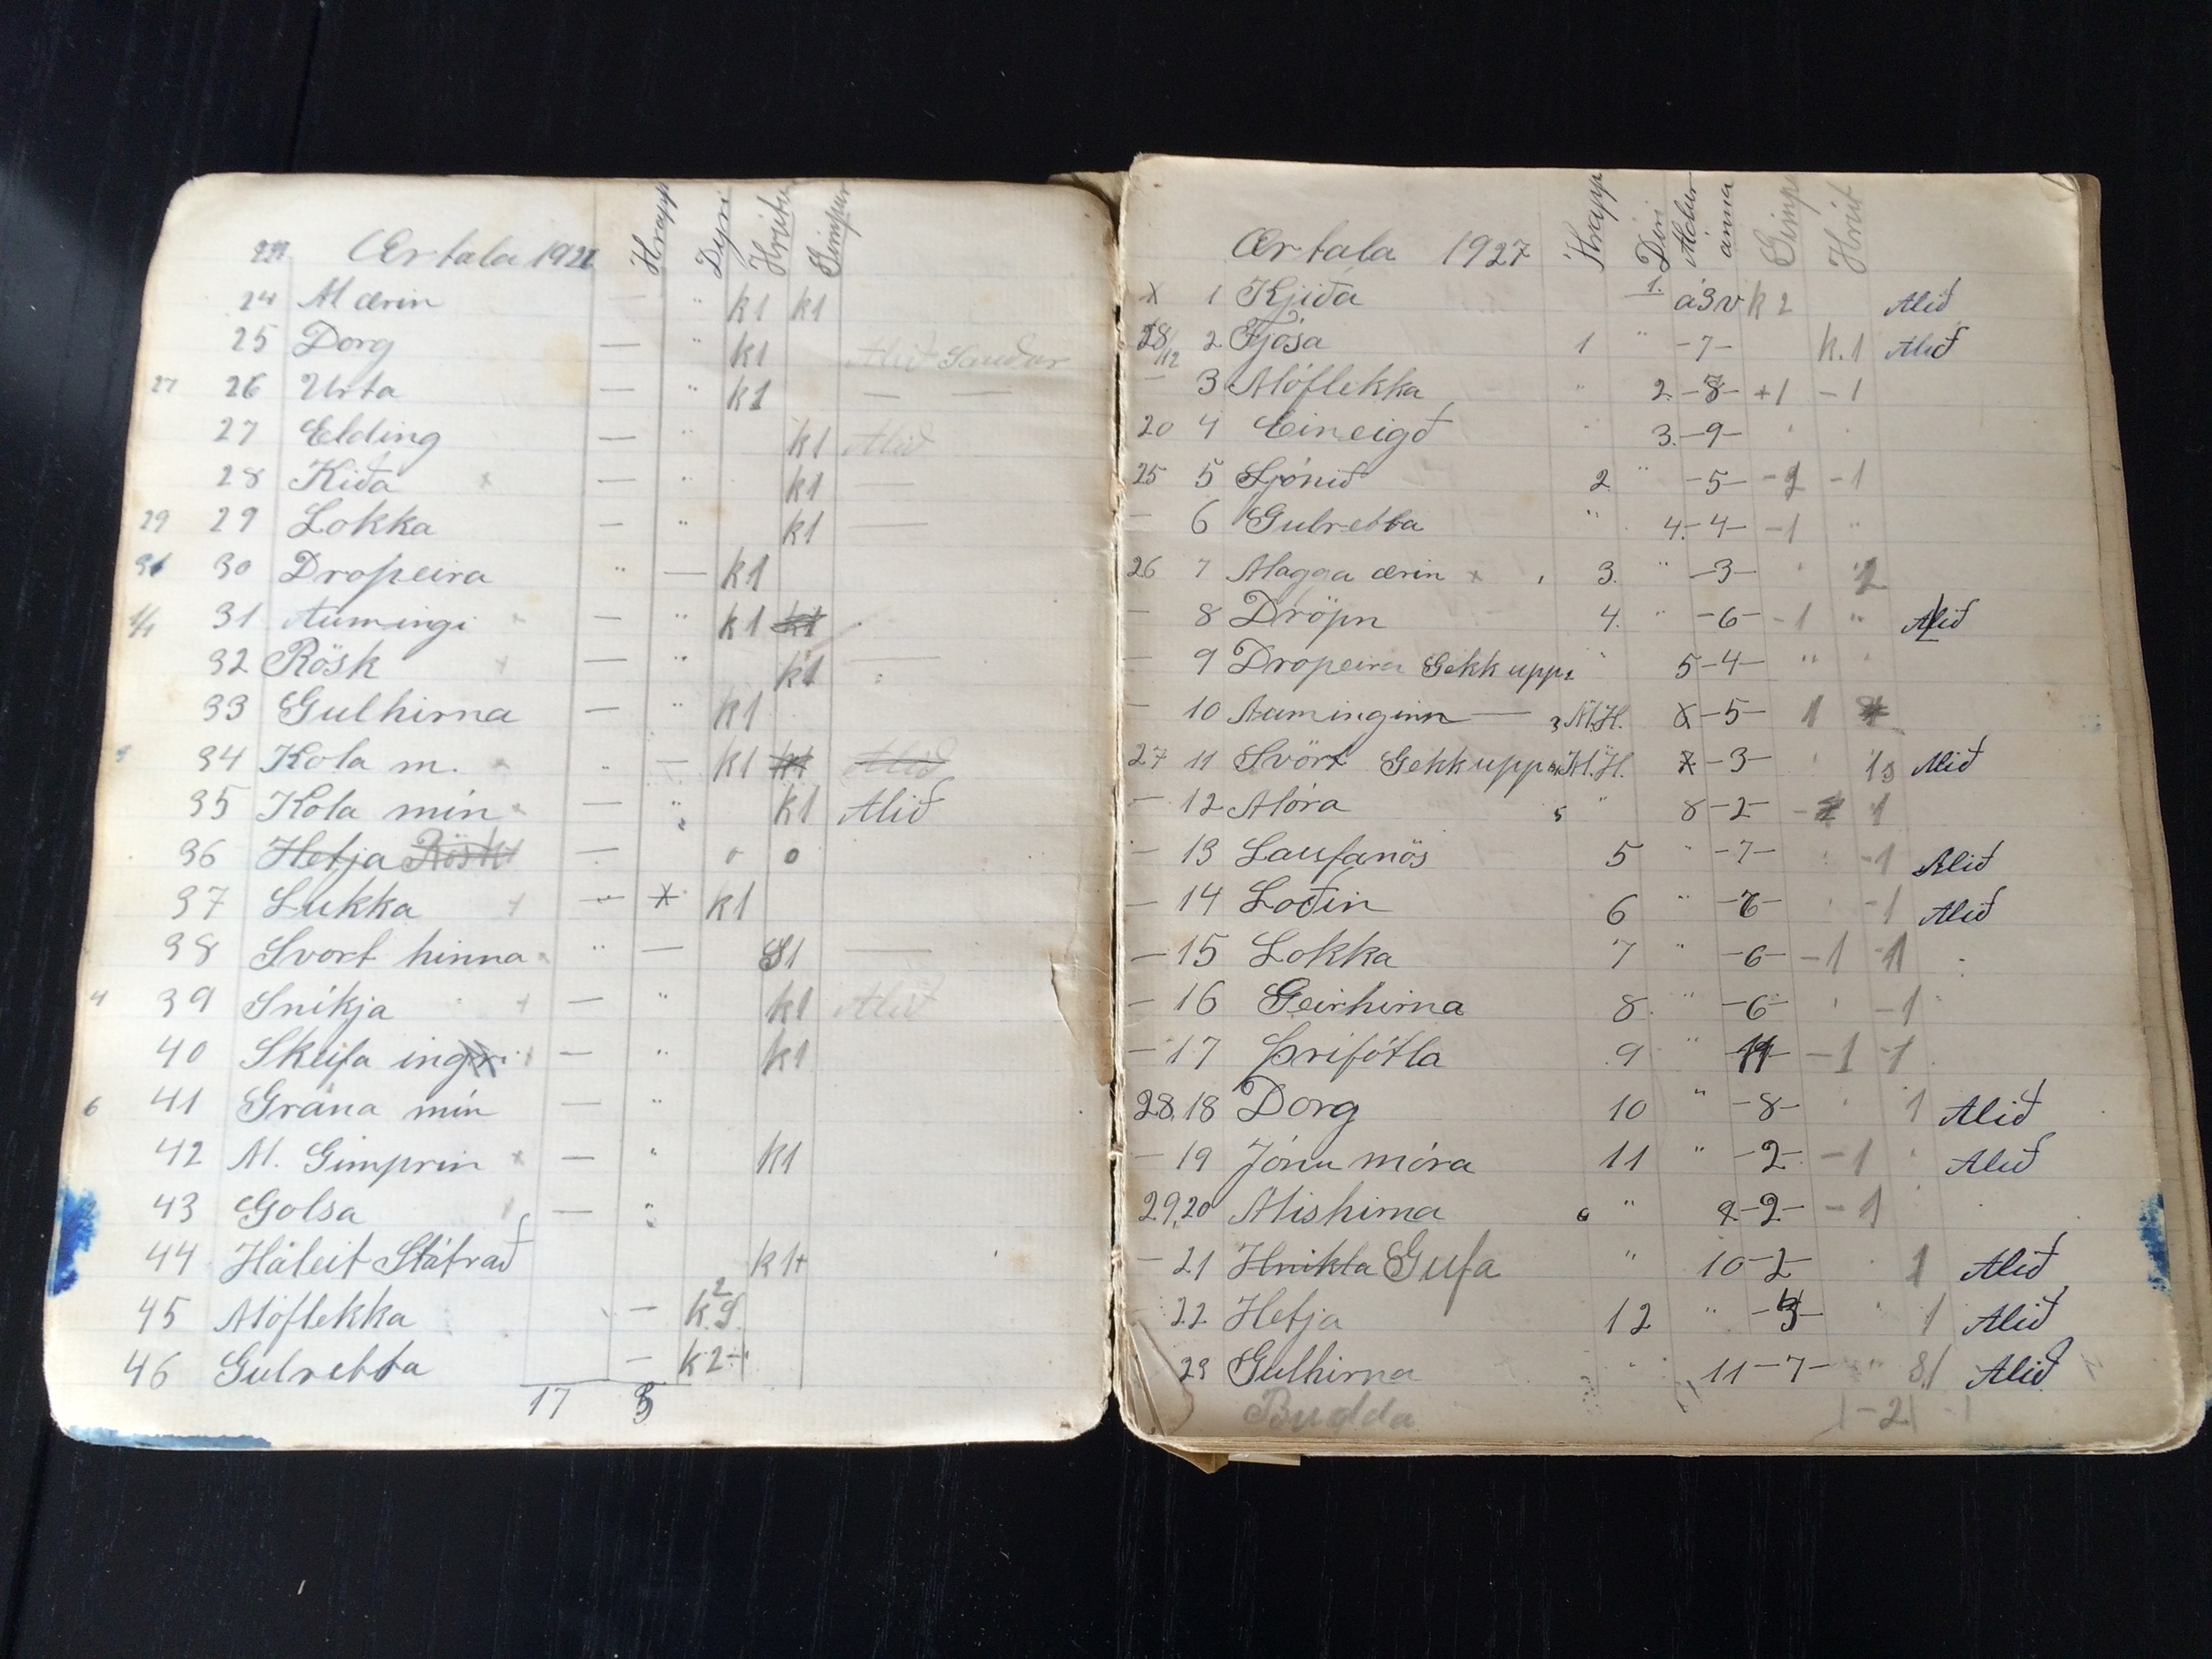 Ærtala 1926 Hrapp Dyri Hrútur Gimpur
24 M ærin — " k1 k1
25 Dorg — " k1 Alið Sauður
27 26 Urta — " k1 — —
27 Elding — " k1 Alið
28 Kiða — " k1 —
29 29 Lokka — " k1 —
30 Dropeira " — k1
31 Aumingi — " k1
32 Rösk — " k1 —
33 Gulhirna — " k1
34 Kola m. " — k1 Alið
35 Kola mín — " k1 Alið
36 Hetja Rösk — o o
37 Lukka — x k1
38 Svort hinna " — S1 —
4 39 Sníkja — " k1 Alið
40 Skufa — " k1
6 41 Grána mín — "
42 M. Gimprin x — " k1
43 Golsa — "
44 Háleit Slátrað k1+
45 Móflekka —
46 Gulretta — k2
17
Ærtala 1927 Hrapp Diri Aldur ánna Gimp Hrút
x 1 Kjiða 1. á3v k2 Alið
28/12 2 Fjósa 1 " -7- k.1 Alið
— 3 Móflekka " 2 -8- +1 -1
20 4 Eineigð " 3. -9-
25 5 Ljónið 2 " -5- -1
— 6 Gulretta " 4. -4- -1 "
26 7 Magga ærin x 3. " -3-
— 8 Dröpn 4. " -6- -1 " Alið
— 9 Dropeira Gekk uppi " 5 -4- "
— 10 Auminginn — M.H. -5- 1
27 11 Svört Gekk uppi M.H. -3- Alið
— 12 Móra 5 " 8 -2- 1
— 13 Laufanös 5 " -7- -1 Alið
— 14 Loðin 6 " -1 Alið
— 15 Lokka 7 " -6- -1 1
— 16 Geirhirna 8 " -6- -1
— 17 Þrifótla 9 " -11- -1 -1
28. 18 Dorg 10 " -8- 1 Alið
— 19 Jónu móra 11 " -2- -1 Alið
29. 20 Mishirna 6 " -2- -1
— 21 Hnikla Gufa " 10 -2- 1 Alið
22 Hetja 12 " 1 Alið
23 Gulhirna " 11 -7- " Alið
Bugda -2